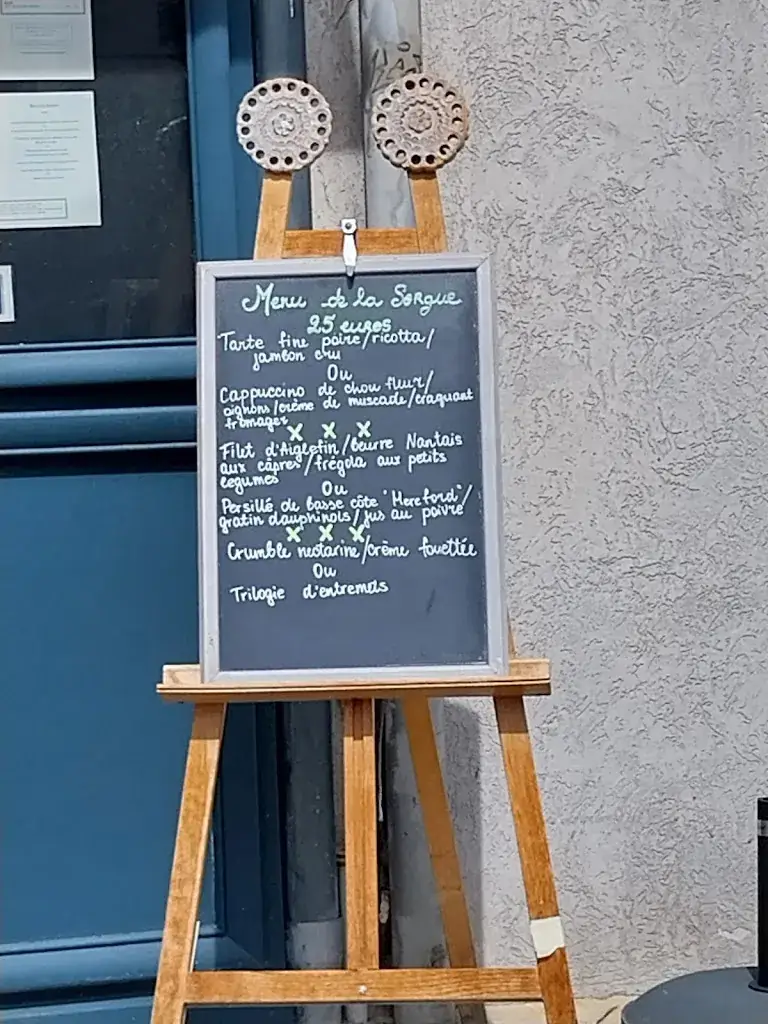 Menu de la Sorgue
25 euros
Tarte fine poire/ricotta/
jambon cru
Ou
Cappuccino de chou fleur/
oignons/crème de muscade/craquant
fromages
x x x
Filet d'Aiglefin/Beurre Nantais
aux câpres/fregola aux petits
legumes
Ou
Persillé de basse côte "Hereford"/
gratin dauphinois/jus au poivre
x x x
Crumble nectarine/crème fouettée
Ou
Trilogie d'entremets